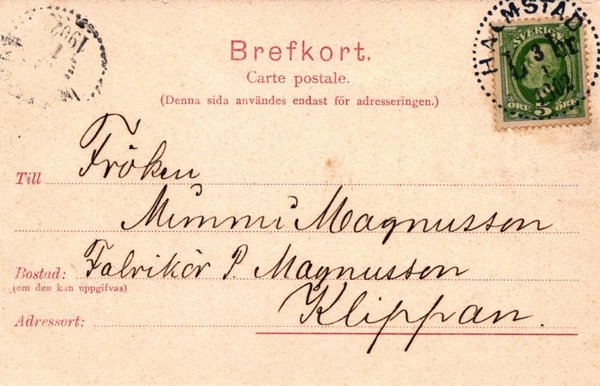 Brefkort.
Carte postale.
(Denna sida användes endast för adresseringen.)
HALMSTAD
1902
SVERIGE
5 5
ÖRE ÖRE
1902
Till Fröken
Mimmi Magnusson
Bostad: Fabrikör P. Magnusson
(om den kan uppgifvas)
Klippan.
Adressort: